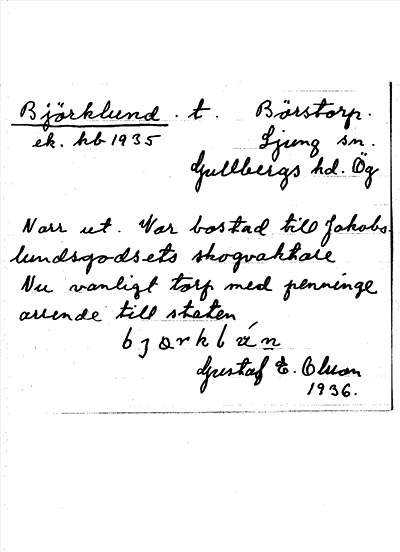 Björklund . t. Börstorp.
ek. kb 1935 Ljung sn.
Gullbergs hd. Ög
Norr ut. Var bostad till Jakobs-
lundsgodsets skogvaktare
Nu vanligt torp med penninge
arrende till staten
Gustaf E. Olson
1936.